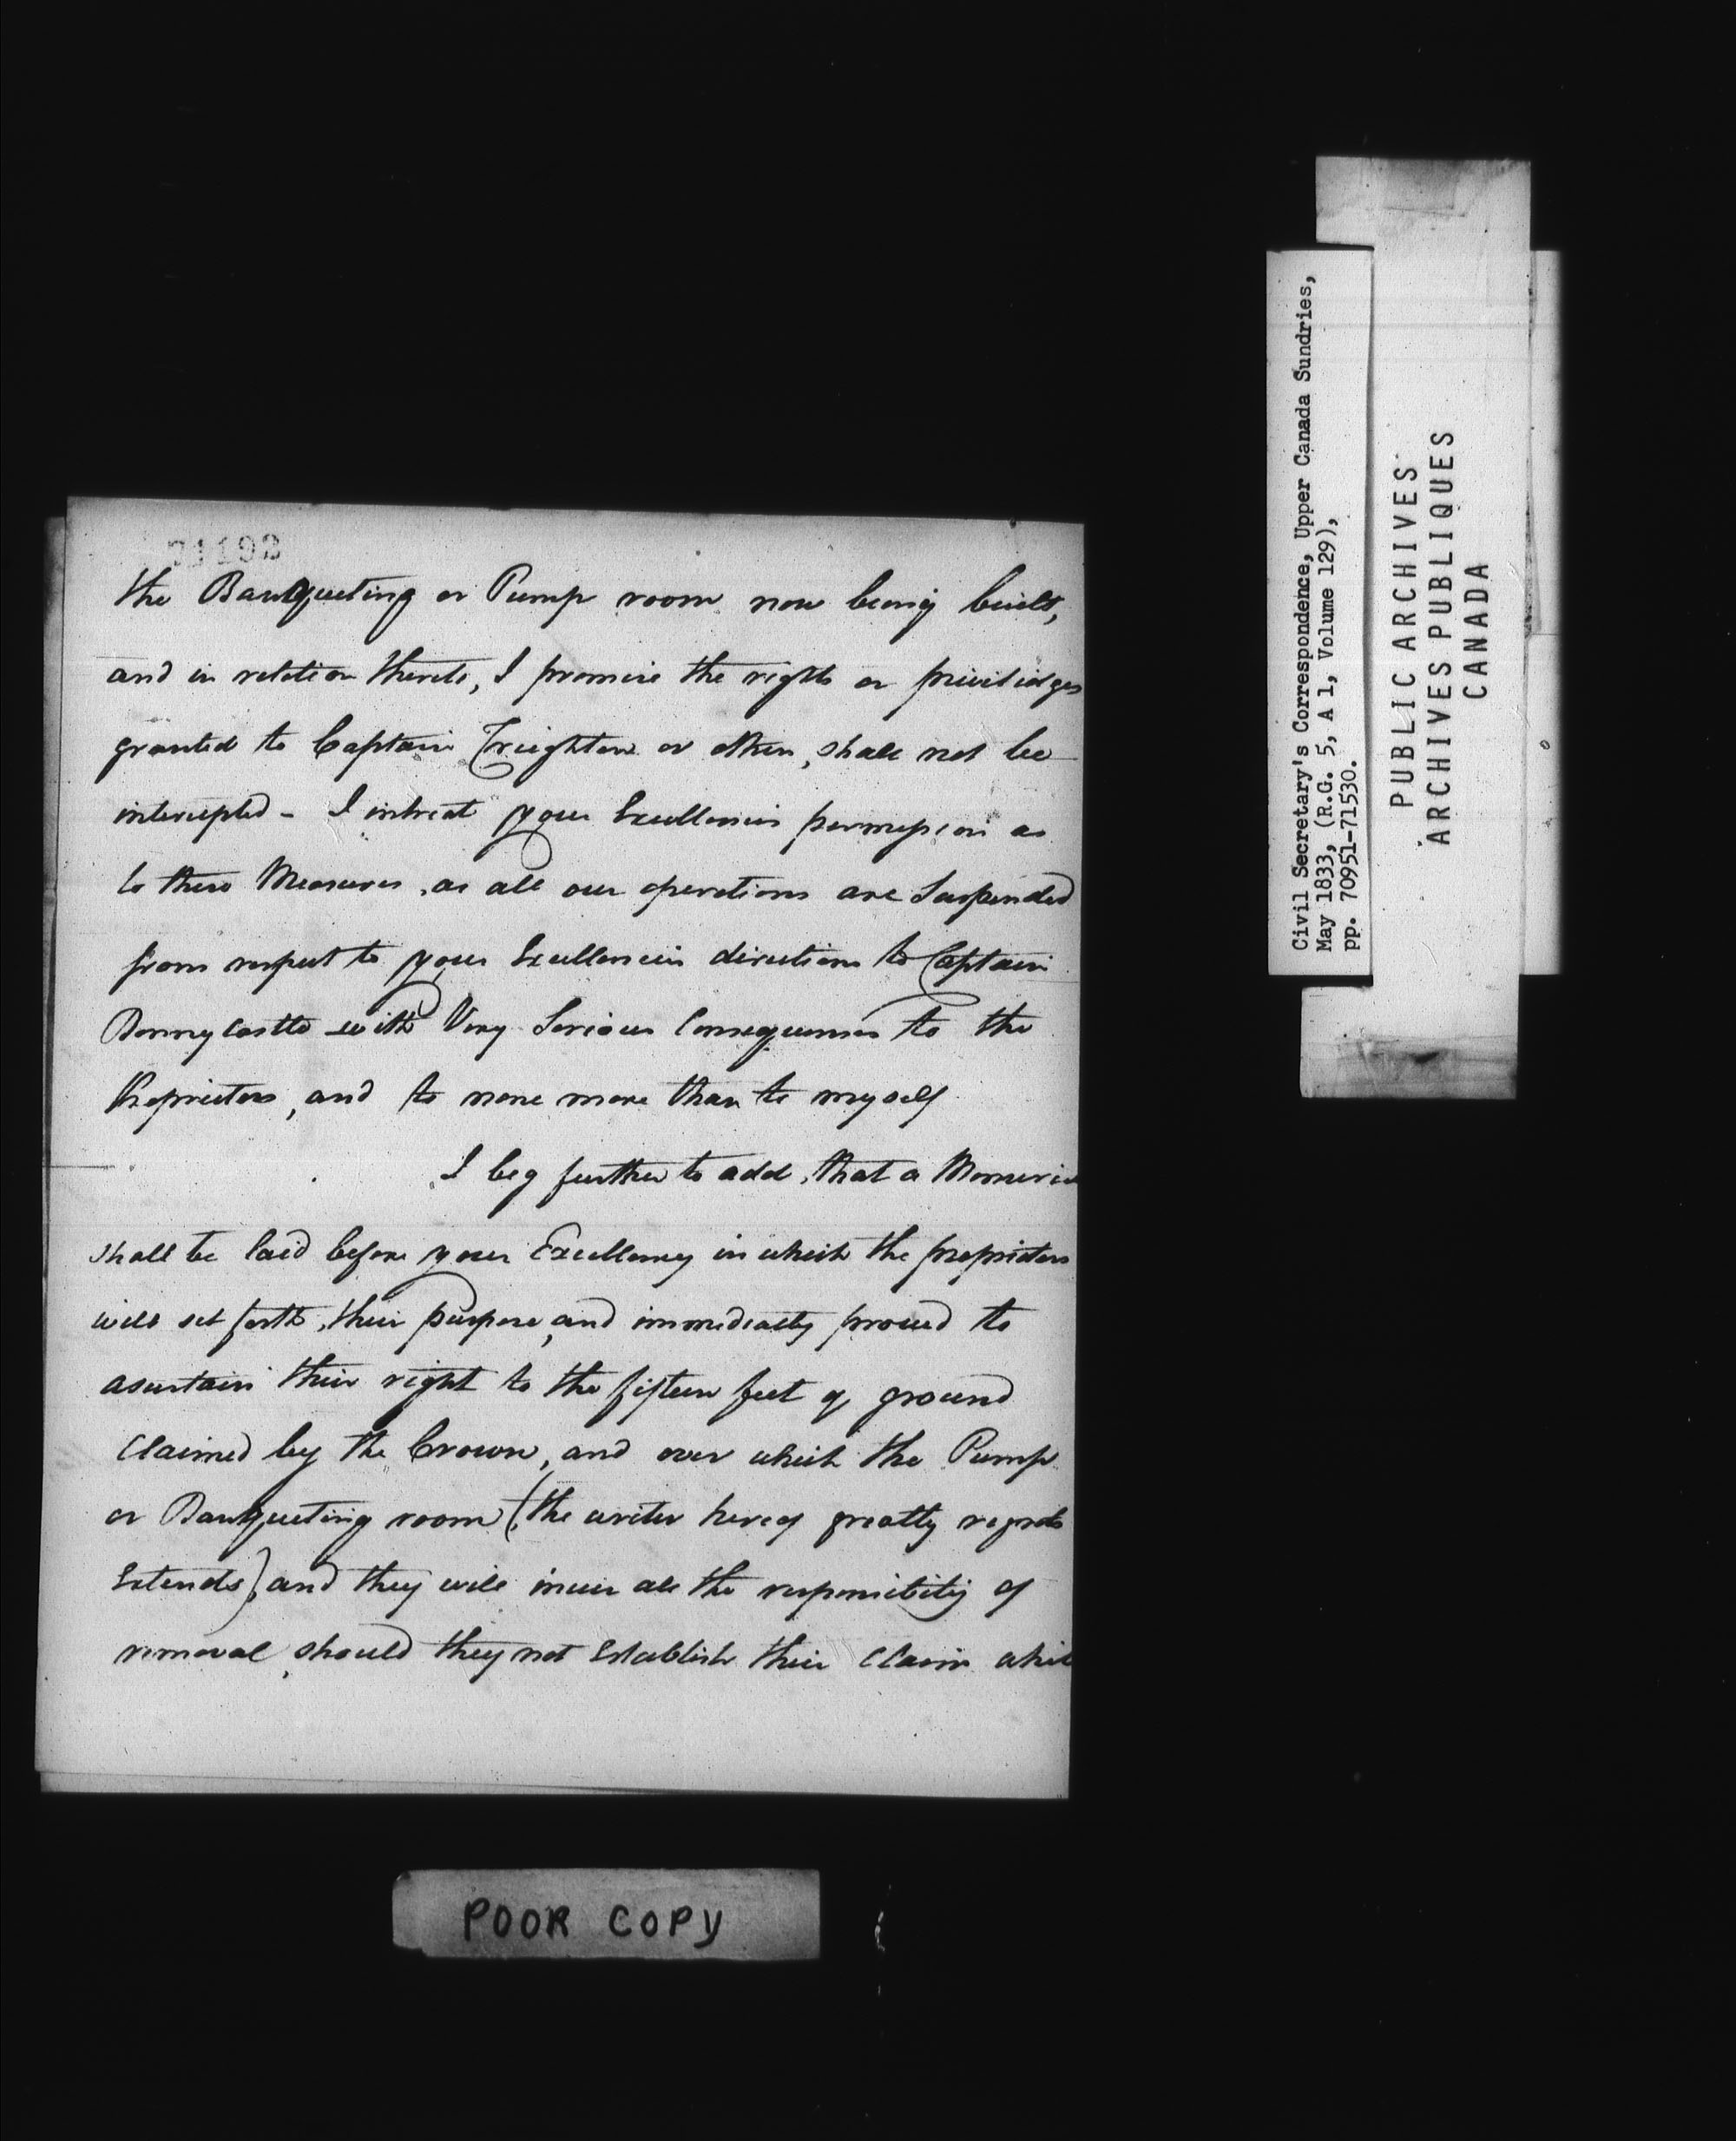 71193
the Banqueting or Pump room now being built,
and in relation thereto, I promise the rights or priviliedges
granted to Captain Creighton or other, shall not be
interupted - I intreat your Excellencies permission as
to these Measures, as all our operations are Suspended
from respect to your Excellencies directions to Captain
Bonnycastle with Very Serious Consequences to the
Proprietors, and to none more than to myself
I beg further to add, that a Memorial
shall be laid before your Excellency in which the proprietors
will set forth, their purpose, and immediatly proceed to
asertain their right to the fifteen feet of ground
Claimed by the Crown, and over which the Pump
or Banqueting room (the writer hereof greatly regrets
Extends), and they will incur all the responsibility of
removal, should they not Establish their Claim whic
POOR COPY
Civil Secretary's Correspondence, Upper Canada Sundries,
May 1833, (R.G. 5, A 1, Volume 129),
pp. 70951-71530.
PUBLIC ARCHIVES
ARCHIVES PUBLIQUES
CANADA